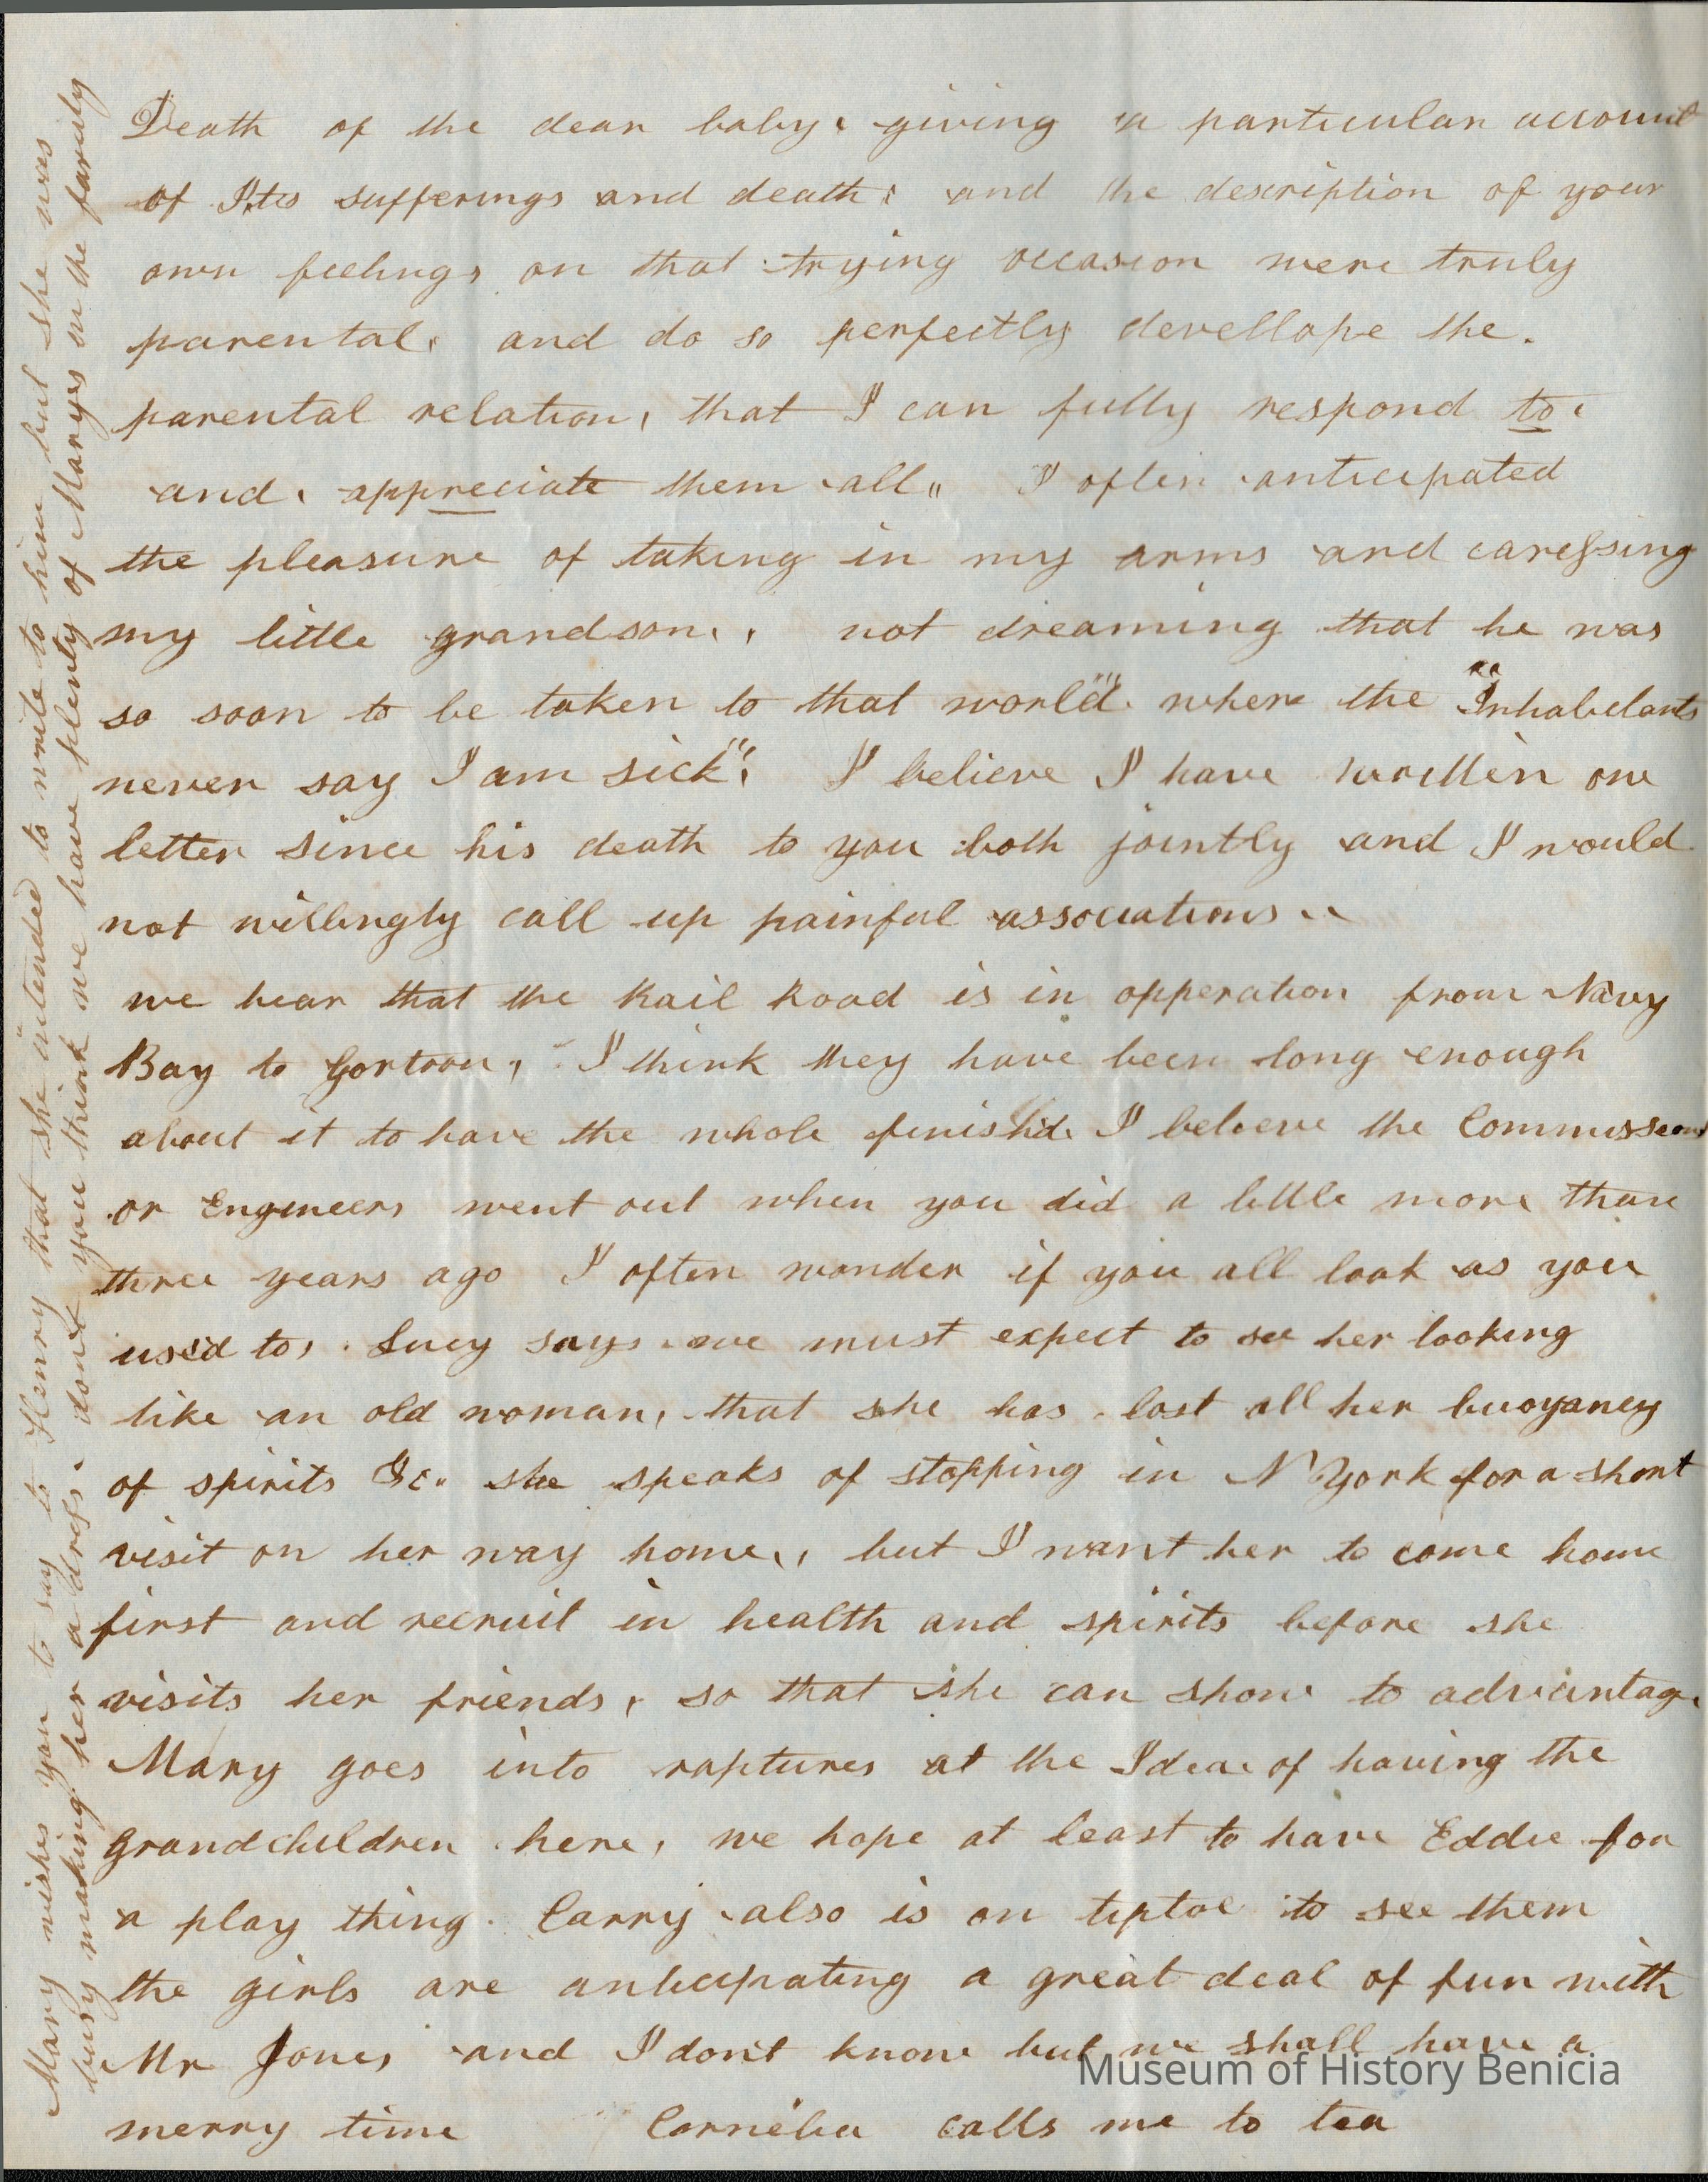 Death of the dear baby, giving a particular account
of Its sufferings and death, and the description of your
own feelings on that trying occasion were truly
parental, and do so perfectly devellope the.
parental relation, that I can fully respond to,
and, appreciate them all,, I often anticipated
the pleasure of taking in my arms and caressing
my little grandson,, not dreaming that he was
so soon to be taken to that world" where the "Inhabitants
never say I am sick", I believe I have written one
letter since his death to you both jointly and I would
not willingly call up painful associations,,
we hear that the Rail Road is in opperation from Navy
Bay to Gortoon, I think they have been long enough
about it to have the whole finishd, I believe the
or Engineers went out when you did a little more than
three years ago I often wonder if you all look as you
used to, Lucy says we must expect to see her looking
like an old woman, that she has lost all her buoyancy
of spirits &c. she speaks of stopping in N York for a short
visit on her way home,, but I want her to come home
first and recruit in health and spirits before she
visits her friends, so that she can show to advantage
Mary goes into raptures at the Idea of having the
grandchildren here, we hope at least to have Eddie for
a play thing. Carry also is on tiptoe to see them
the girls are anticipating a great deal of fun with
Mr Jones and I don't know but we shall have a
merry time Cornelia calls me to tea
Mary wishes you to say to Henry that she intended to write to him but she was
busy making her a dress, dont you think we have plenty of Marys in the family
Museum of History Benicia